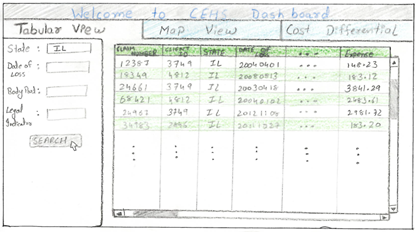 Welcome to CEHS Dashboard
Tabular View Map View Cost Differential
State : IL
Date of Loss :
Body Part :
Legal Indicator :
SEARCH
CLAIM NUMBER CLIENT ID STATE DATE OF ... Expense
12387 3749 IL 20040401 ... 148.23
19349 4812 IL 20080813 ... 183.12
24661 3749 IL 20030418 ... 3841.29
68421 4812 IL 20040102 ... 2983.61
24952 3749 IL 20121108 ... 2981.72
34983 2995 IL 20111227 ... 183.20